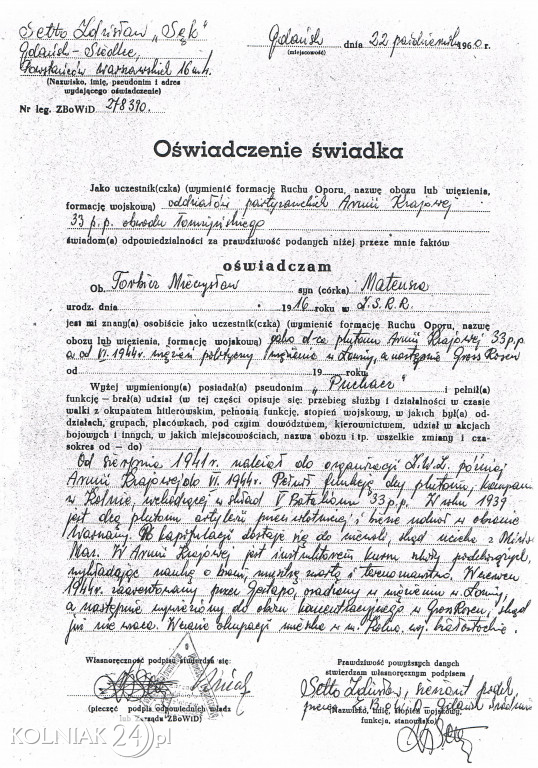 Setta Zdzisław „Sęk"
Gdańsk - Siedlce,
Powstańców Warszawskich 16 m 4.
(Nazwisko, imię, pseudonim i adres
wydającego oświadczenie)
Nr leg. ZBoWiD 278390.
Gdańsk dnia 22 października 1960 r.
(miejscowość)
Oświadczenie świadka
Jako uczestnik(czka) (wymienić formację Ruchu Oporu, nazwę obozu lub więzienia,
formację wojskową) oddziałów partyzanckich Armii Krajowej
33 p.p. obwodu Łomżyńskiego
świadom(a) odpowiedzialności za prawdziwość podanych niżej przeze mnie faktów
oświadczam
Ob. Torbicz Mieczysław syn (córka) Mateusza
urodz. dnia 1916 roku w Z.S.R.R.
jest mi znany(a) osobiście jako uczestnik(czka) (wymienić formację Ruchu Oporu, nazwę
obozu lub więzienia, formację wojskową) jako d-ca plutonu Armii Krajowej 33 p.p.
a od VI. 1944 r. więzień polityczny więzienia w Łomży, a następnie Gross Rosen
od 19 roku
Wyżej wymieniony(a) posiadał(a) pseudonim „Puchacz" i pełnił(a)
funkcję — brał(a) udział (w tej części opisuje się: przebieg służby i działalności w czasie
walki z okupantem hitlerowskim, pełnoną funkcję, stopień wojskowy, w jakich był(a) od-
działach, grupach, placówkach, pod czyim dowództwem, kierownictwem, udział w akcjach
bojowych i innych, w jakich miejscowościach, nazwa obozu i tp. wszelkie zmiany i cza-
sokres od — do)
Od sierpnia 1941 r. należał do organizacji Z.W.Z. później
Armii Krajowej do VI. 1944 r. Pełnił funkcję dcy plutonu, kompanii
w Kolnie, wchodzącej w skład V Batalionu 33 p.p. W roku 1939
jest dcą plutonu artylerii przeciwlotniczej i bierze udział w obronie
Warszawy. Po kapitulacji dostaje się do niewoli, skąd ucieka z
Maz. W Armii Krajowej jest instruktorem kursu młodszych podchorążych,
wykładając naukę o broni, musztrę, wartę i terenoznawstwo. W czerwcu
1944 r. zaaresztowany przez Gestapo, osadzony w więzieniu w Łomży,
a następnie wywieziony do obozu koncentracyjnego w Grossrosen, skąd
już nie wraca. W czasie okupacji mieszka w m. Kolno, woj. białostockie.
Własnoręczność podpisu stwierdza się:
(pieczęć podpis odpowiednich władz
lub Zarządu ZBoWiD)
Prawdziwość powyższych danych
stwierdzam własnoręcznym podpisem
Setta Zdzisław, sierżant podch.
prezes ZBoWiD - Gdańsk Śródmieście
(Nazwisko, imię, stopień wojskowy,
funkcja, stanowisko)
KOLNIAK24.pl